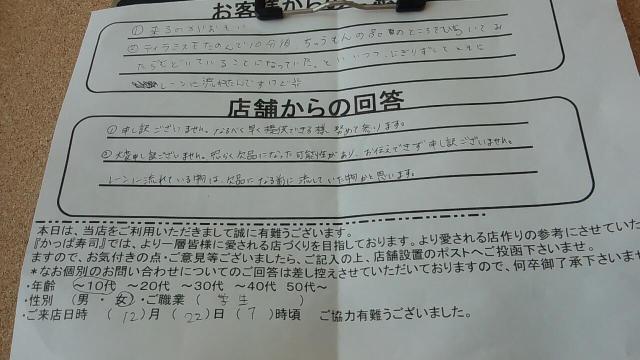 お客様から
①来るのがおそい
②ティラミスをたのんで10分後ちゅうもんの品
たらとどいていることになっていた。といいつつ、にぎり
レーンに流れたんですけど
店舗からの回答
①申し訳ございません。なるべく早く提供できる様、努めて参ります。
②大変申し訳ございません。恐らく欠品になった可能性があり、お伝えできず申し訳ございません。
レーンに流れている物は、欠品になる前に流していた物かと思います。
本日は、当店をご利用いただきまして誠に有難うございます。
『かっぱ寿司』では、より一層皆様に愛される店づくりを目指しております。より愛される店作りの参考にさせていた
ますので、お気付きの点・ご意見等ございましたら、ご記入の上、店舗設置のポストへご投函下さいませ。
*なお個別のお問い合わせについてのご回答は差し控えさせていただいておりますので、何卒御了承下さいませ
・年齢 〜10代 〜20代 〜30代 〜40代 50代〜
・性別 (男・女)・ご職業 ( 学生 )
・ご来店日時 (12)月 (22)日 (7)時頃 ご協力有難うございました。